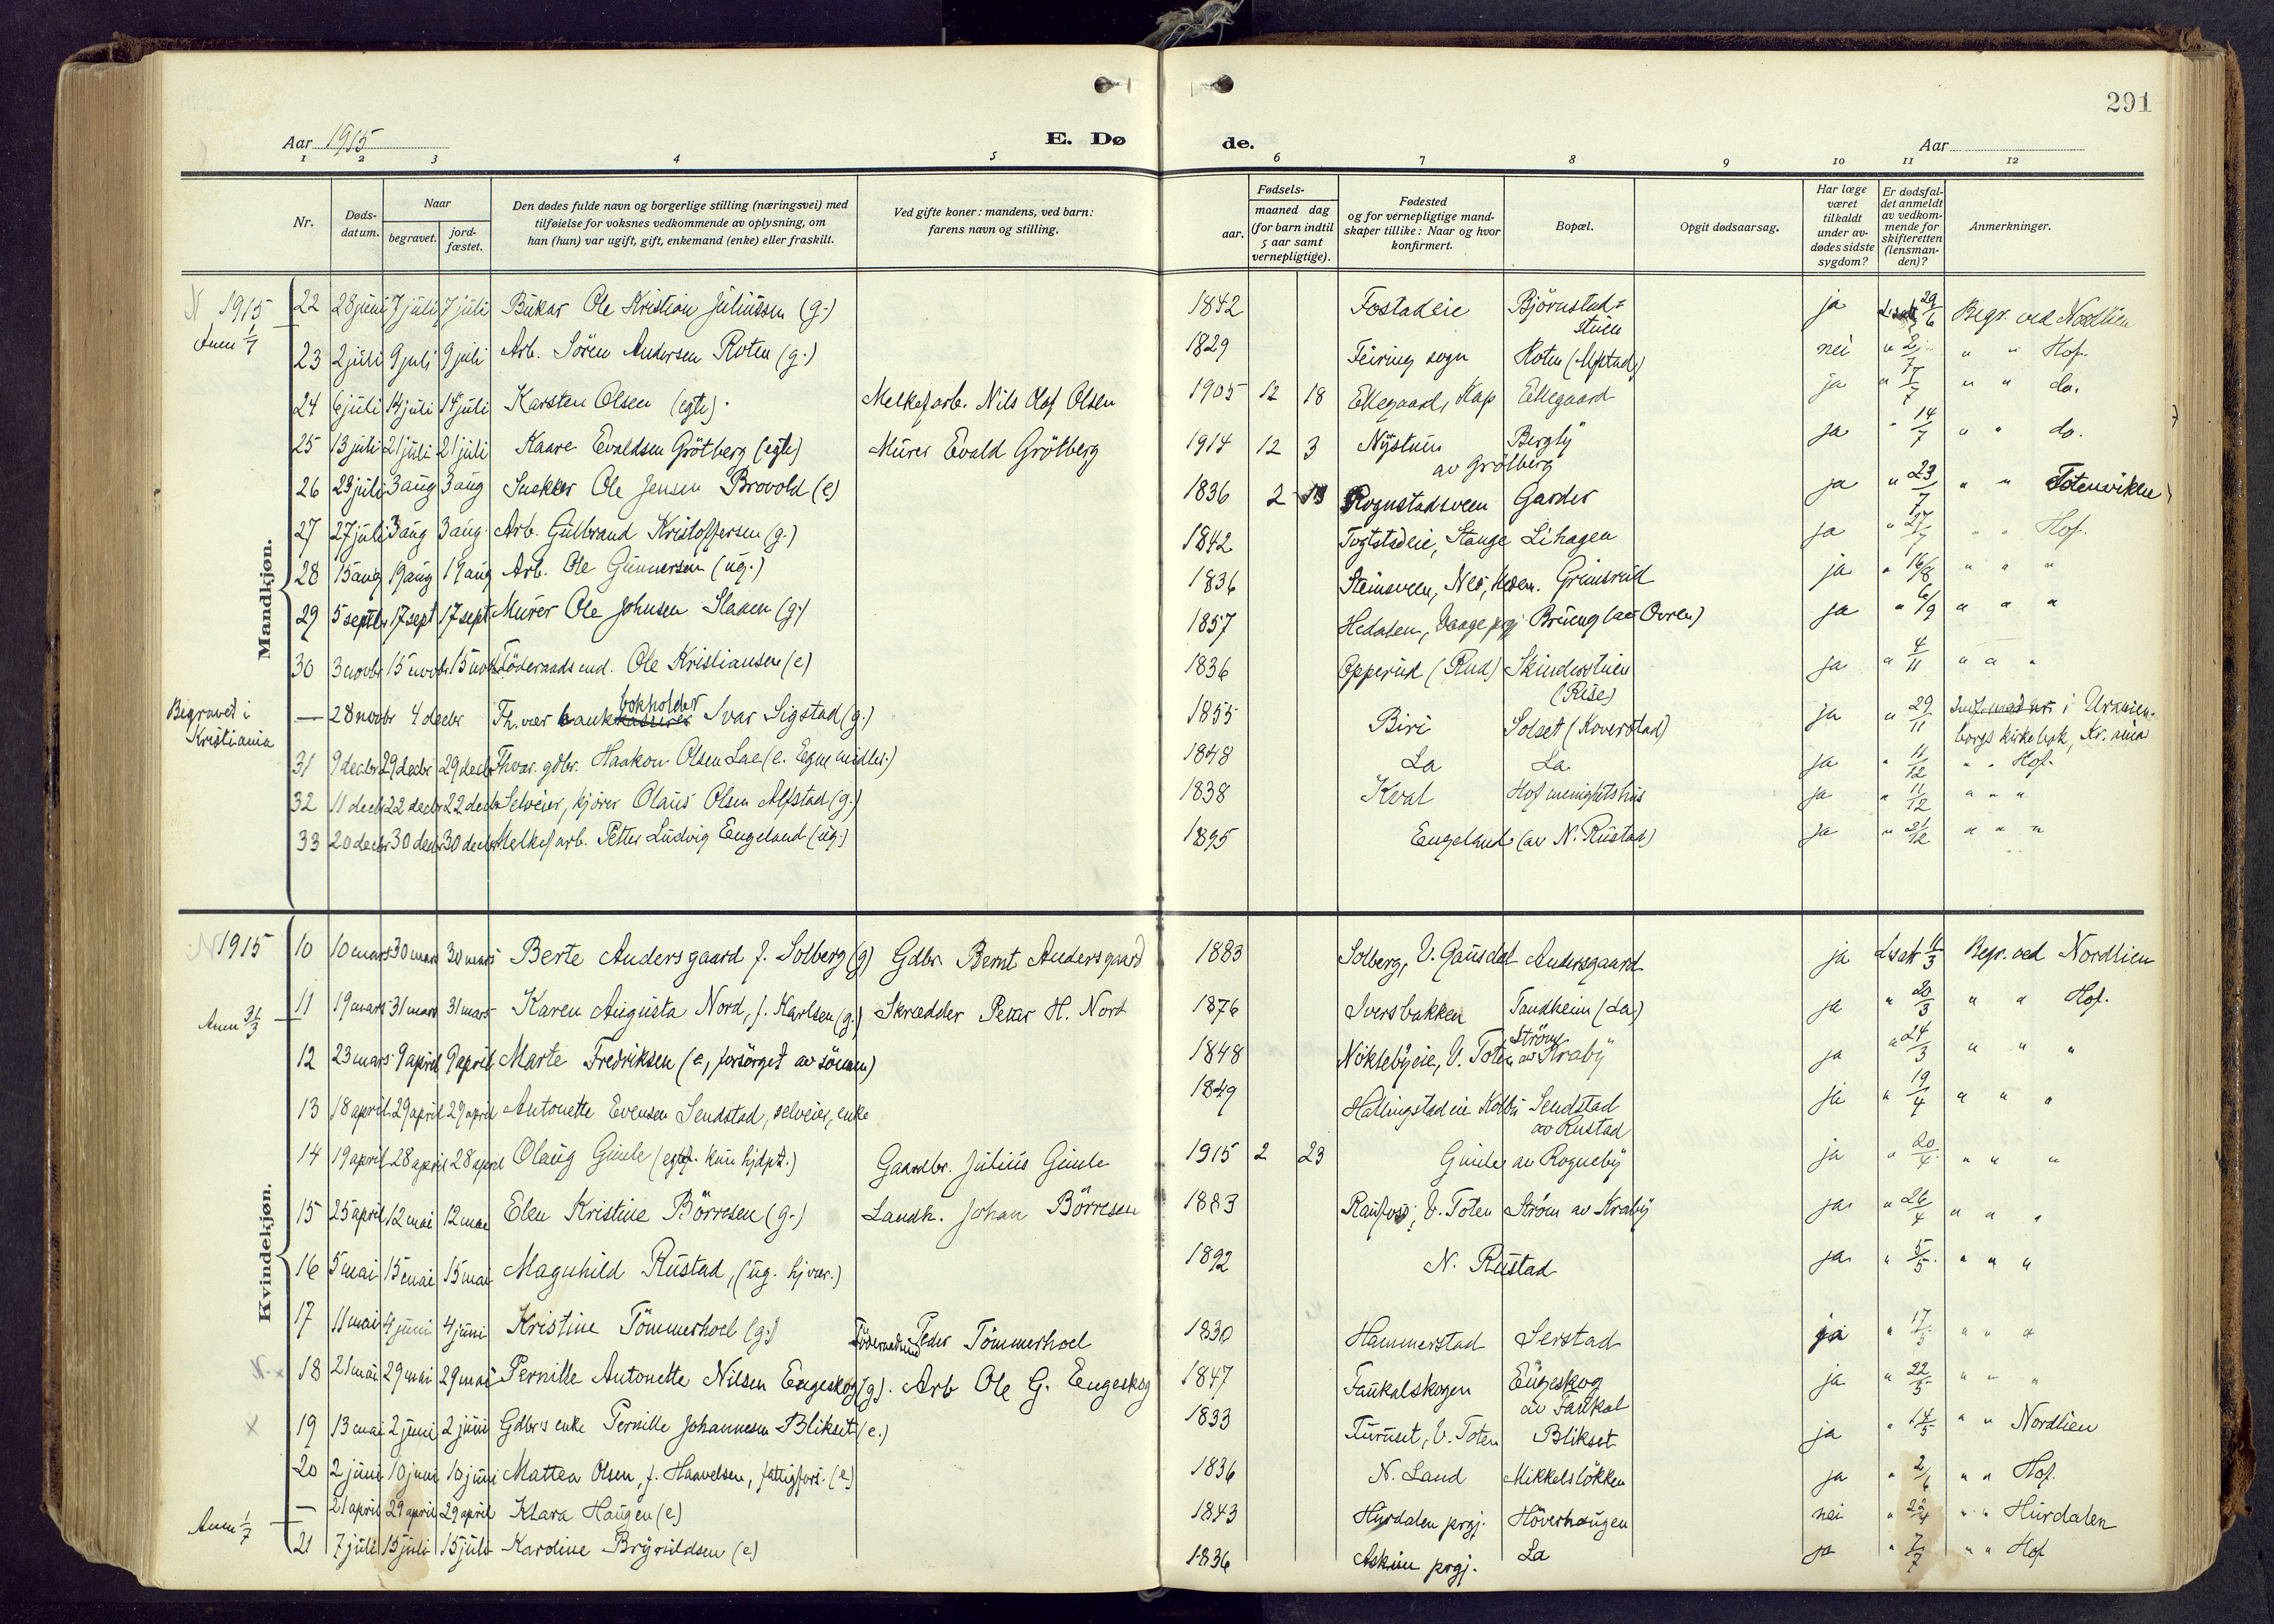 291
Aar 1915
E. Dø
de.
Aar
1 2 3 4 5 6 7 8 9 10 11 12
Nr.
Døds-
datum.
Naar
begravet.
jord-
fæstet.
Den dødes fulde navn og borgerlige stilling (næringsvei) med
tilføielse for voksnes vedkommende av oplysning, om
han (hun) var ugift, gift, enkemand (enke) eller fraskilt.
Ved gifte koner: mandens, ved barn:
farens navn og stilling.
Fødsels-
aar.
maaned dag
(for barn indtil
5 aar samt
vernepligtige).
Fødested
og for vernepligtige mand-
skaper tillike: Naar og hvor
konfirmert.
Bopæl.
Opgit dødsaarsag.
Har læge
været
tilkaldt
under av-
dødes sidste
sygdom?
Er dødsfal-
det anmeldt
av vedkom-
mende for
skifteretten
(lensman-
den)?
Anmerkninger.
Mandkjøn.
N 1915
22 28 juni 7 juli 7 juli Ole Kristian Juliussen (g.) 1842 Fostadeie Bjørnstad= ja 29/6 Begr. ved Nordlien
stuen
23 2 juli 9 juli 9 juli Arb. Sören Andersen Roten (g.) 1829 Feiring sogn Roten (Alfstad) nei " 2/7 " " Hof.
24 6 juli 14 juli 14 juli Karsten Olsen (egte). Melkefarb. Nils Olaf Olsen 1905 12 18 Ellegaard, Kap Ellegaard ja " 7/7 " " do.
25 13 juli 21 juli 21 juli Kaare Evaldsen Grötberg (egte) Murer Evald Grötberg 1914 12 3 Nystuen Bergly ja " 14/7 " " do.
av Grötberg
26 23 juli 3 aug 3 aug Snekker Ole Jensen Brovold (e) 1836 2 13 Rognstadsveen Garder ja " 23/7 " " Totenviken
27 27 juli 3 aug 3 aug. Arb. Gulbrand Kristoffersen (g.) 1842 Stange Lihagen ja " 27/7 " " Hof.
28 15 aug 19 aug 19 aug Arb. Ole Gunnersen (ug.) 1836 Steinsveen, Nes, Hedem. Grimsrud ja " 16/8 " " "
29 5 septbr 17 sept 17 sept Murer Ole Johnsen Slaaen (g.) 1857 Hedalen, Vaage prgj Bruung (av Ovren) ja " 6/9 " " "
30 3 novbr 15 novbr 15 novbr Föderaadsmd. Ole Kristiansen (e) 1836 Opperud (Rud) Skinderstuen ja " 4/11 " " "
(Rise)
Begravet i
Kristiania
bokholder
— 28 novbr 4 decbr Fh. vær bankkasserer Ivar Sigstad (g.) 1855 Biri Solset (Koverstad) ja " 29/11 i Uranien-
borgs kirkebok, Kr.ania
31 9 decbr 29 decbr 29 decbr Fhvær. gdbr. Haakon Olsen Lae (e. Egne midler.) 1848 La La ja " 11/12 " " Hof.
32 11 decbr 22 decbr 22 decbr Selveier, kjörer Olaus Olsen Alfstad (g.) 1838 Kval Hof menighetshus ja " 11/12 " " "
33 20 decbr 30 decbr 30 decbr Melkefarb. Petter Ludvig Engeland (ug.) 1895 Engeland (av N. Rustad) ja " 21/12 " " "
Kvindekjøn.
N 1915
10 10 mars 30 mars 30 mars Berte Andersgaard f. Solberg (g) Gdbr. Bernt Andersgaard 1883 Solberg, V. Gausdal Andersgaard ja Lsat 11/3 Begr. ved Nordlien
11 19 mars 31 mars 31 mars Karen Augusta Nord, f. Karlsen (g.) Skrædder Peder H. Nord 1876 Iversbakken Tandheim (La) ja " 20/3 " " Hof.
Anm 31/3
Ström
12 23 mars 9 april 9 april Marte Fredriksen (e, forsörget av sönnen) 1848 Nöklebyeie, V. Toten av Kraby ja " 24/3 " " "
13 18 april 29 april 29 april Antonette Evensen Sendstad, selveier, enke 1849 Hallingstadeie Kolbu Sendstad ja " 19/4 " " "
av Rustad
14 19 april 28 april 28 april Olaug Gimle (egtef. kun hjdpt.) Gaardbr. Julius Gimle 1915 2 23 Gimle av Rogneby ja " 20/4 " " "
15 25 april 12 mai 12 mai Elen Kristine Börresen (g.) Landh. Johan Börresen 1883 Raufoss, V. Toten Ström av Kraby ja " 26/4 " " "
16 5 mai 15 mai 15 mai Magnhild Rustad, (ug. hjvær.) 1892 N. Rustad ja " 5/5 " " "
17 11 mai 4 juni 4 juni Kristine Tömmerhoel (g.) Föderaadsmd Peder Tömmerhoel 1830 Hammerstad Serstad ja " 17/5 " " "
18 21 mai 29 mai 29 mai Pernille Antonette Nilsen Engeskog (g). Arb Ole G. Engeskog 1847 Faukalskogen Engeskog ja " 22/5 " " "
av Faukal
19 13 mai 2 juni 2 juni Gdbr's enke Pernille Johannesen Blikset (e.) 1833 Furuset, V. Toten Blikset ja " 14/5 " " Nordlien
20 2 juni 10 juni 10 juni Mattea Olsen, f. Haavelsen, fattigfors. (e) 1836 N. Land Mikkelslökken ja " 2/6 " " Hof.
— 21 april 29 april 29 april Klara Haugen (e) 1843 Hurdalen prgj. Höverhaugen nei " 22/4 " " Hurdalen
Anm 1/7
21 7 juli 15 juli 15 juli Karoline Brynildsen (e) 1836 Askim prgj. La ja " 7/7 " " Hof